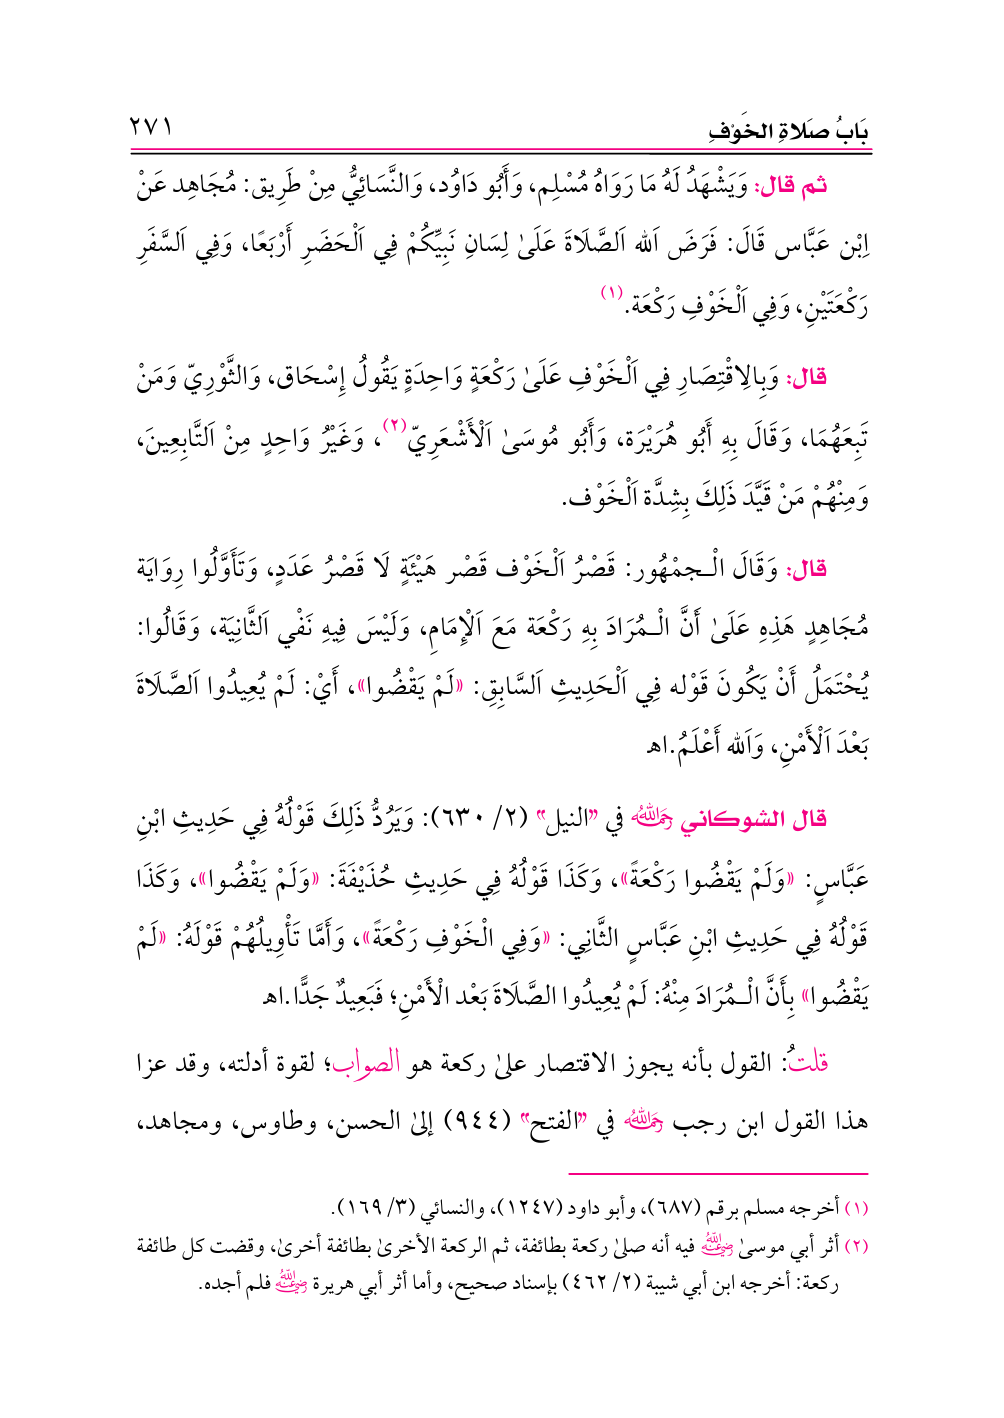 بَابُ صَلاةِ الخَوْفِ ٢٧١
ثم قال: وَيَشْهَدُ لَهُ مَا رَوَاهُ مُسْلِم، وَأَبُو دَاوُد، وَالنَّسَائِيُّ مِنْ طَرِيق: مُجَاهِد عَنْ
اِبْن عَبَّاس قَالَ: فَرَضَ اَلله اَلصَّلَاةَ عَلَىٰ لِسَانِ نَبِيِّكُمْ فِي اَلْحَضَرِ أَرْبَعًا، وَفِي اَلسَّفَرِ
رَكْعَتَيْنِ، وَفِي اَلْخَوْفِ رَكْعَة.(١)
قال: وَبِالِاقْتِصَارِ فِي اَلْخَوْفِ عَلَىٰ رَكْعَةٍ وَاحِدَةٍ يَقُولُ إِسْحَاق، وَالثَّوْرِيّ وَمَنْ
تَبِعَهُمَا، وَقَالَ بِهِ أَبُو هُرَيْرَة، وَأَبُو مُوسَىٰ اَلْأَشْعَرِيّ(٢)، وَغَيْرُ وَاحِدٍ مِنْ اَلتَّابِعِينَ،
وَمِنْهُمْ مَنْ قَيَّدَ ذَلِكَ بِشِدَّة اَلْخَوْف.
قال: وَقَالَ الْـجمْهُور: قَصْرُ اَلْخَوْف قَصْر هَيْئَةٍ لَا قَصْرُ عَدَدٍ، وَتَأَوَّلُوا رِوَايَة
مُجَاهِدٍ هَذِهِ عَلَىٰ أَنَّ الْـمُرَادَ بِهِ رَكْعَة مَعَ اَلْإِمَامِ، وَلَيْسَ فِيهِ نَفْي اَلثَّانِيَة، وَقَالُوا:
يُحْتَمَلُ أَنْ يَكُونَ قَوْله فِي اَلْحَدِيثِ اَلسَّابِقِ: «لَمْ يَقْضُوا»، أَيْ: لَمْ يُعِيدُوا اَلصَّلَاةَ
بَعْدَ اَلْأَمْنِ، وَاَلله أَعْلَمُ.اهـ
قال الشوكاني رَحِمَهُ اللَّهُ في "النيل" (٢/ ٦٣٠): وَيَرُدُّ ذَلِكَ قَوْلُهُ فِي حَدِيثِ ابْنِ
عَبَّاسٍ: «وَلَمْ يَقْضُوا رَكْعَةً»، وَكَذَا قَوْلُهُ فِي حَدِيثِ حُذَيْفَةَ: «وَلَمْ يَقْضُوا»، وَكَذَا
قَوْلُهُ فِي حَدِيثِ ابْنِ عَبَّاسٍ الثَّانِي: «وَفِي الْخَوْفِ رَكْعَةً»، وَأَمَّا تَأْوِيلُهُمْ قَوْلَهُ: «لَمْ
يَقْضُوا» بِأَنَّ الْـمُرَادَ مِنْهُ: لَمْ يُعِيدُوا الصَّلَاةَ بَعْد الْأَمْنِ؛ فَبَعِيدٌ جَدًّا.اهـ
قلتُ: القول بأنه يجوز الاقتصار علىٰ ركعة هو الصواب؛ لقوة أدلته، وقد عزا
هذا القول ابن رجب رَحِمَهُ اللَّهُ في "الفتح" (٩٤٤) إلىٰ الحسن، وطاوس، ومجاهد،
(١) أخرجه مسلم برقم (٦٨٧)، وأبو داود (١٢٤٧)، والنسائي (٣/ ١٦٩).
(٢) أثر أبي موسىٰ رَضِيَ اللَّهُ عَنْهُ فيه أنه صلىٰ ركعة بطائفة، ثم الركعة الأخرىٰ بطائفة أخرىٰ، وقضت كل طائفة
ركعة: أخرجه ابن أبي شيبة (٢/ ٤٦٢) بإسناد صحيح، وأما أثر أبي هريرة رَضِيَ اللَّهُ عَنْهُ فلم أجده.